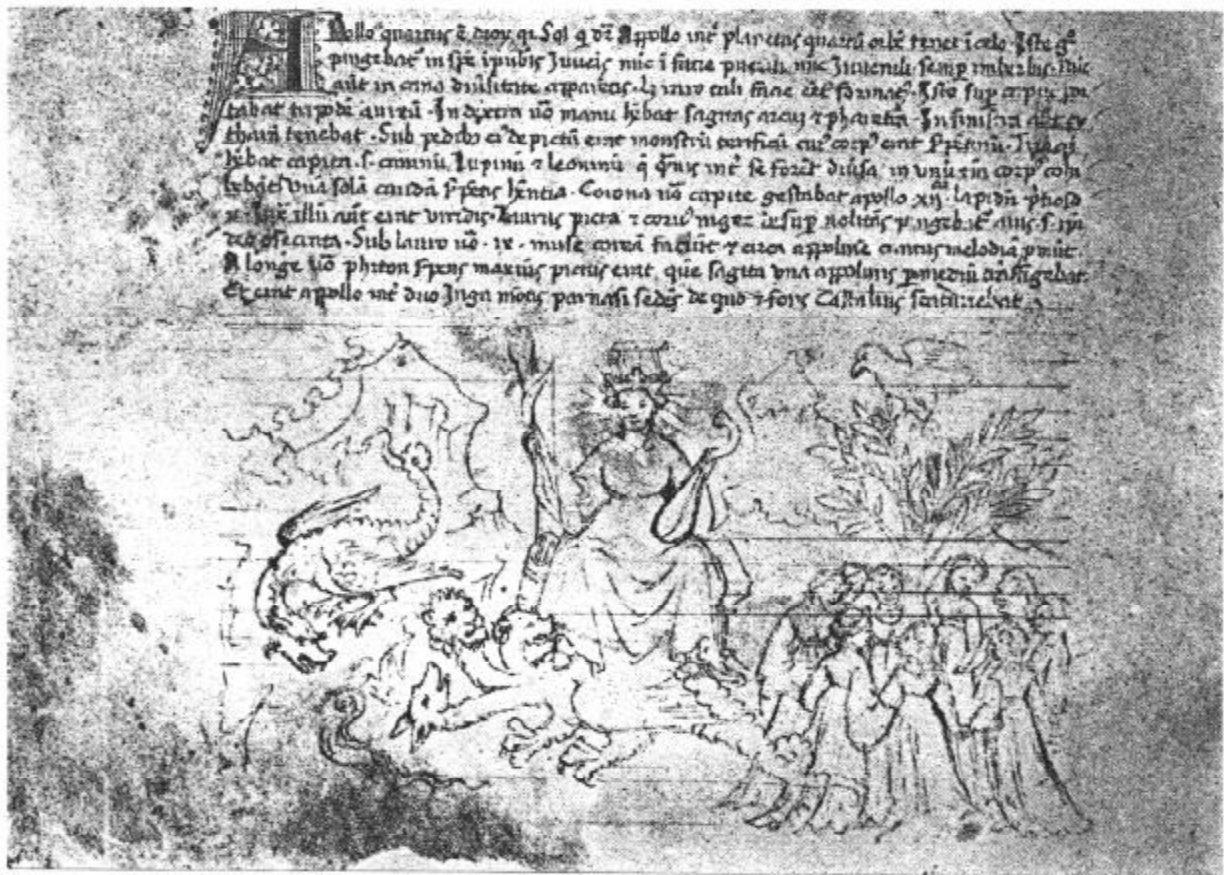 Apollo quartus ē deoꝝ qi Sol q dr̄ Appollo int' planetas quartū orbē tenet ī celo. Iste gͦ
pingebat' in spē ipubis Juuēis nūc ī facie puerili nūc Juuenili semp imberbis. nūc
aūt in cana diūsitate apparētis.
tabat tripodē aureū. In dextra uō manu hēbat sagitas arcū ⁊ pharetrā. In sinistra aūt cy
tharā tenebat. Sub pedibꝫ eiꝰ depictū erat monstrū terificū cuiꝰ corpꝰ erat sꝑentinū. Triaqꝫ
hēbat capita .s. caninū lupinū ⁊ leoninū q̄ q̄uis int' se forēt diūsa in unū tn̄ corpꝰ cohi
bebāt' una solā caudā sꝑentis hn̄tia. Corona uō capite gestabat apollo xij lapidū p̄tioso
ꝝ. Iuxᵗ illū aūt erat uiridis Laurus picta ⁊ coruꝰ niger desup uolitās pingebat' auis .s. ipi
deo ꝯsecrata. Sub lauro uō .ix. muse coreā faciūt ⁊ circa appolinē cantus melodiā ꝓmūt.
A longe uō phiton sꝑens maxiūs pictus erat, quē sagita una appolinis ꝑ mediū trāsfigebat.
Et erat apollo int' duo Juga mōtis parnasi sedēs de quo ⁊ fons Castalius scaturiebat.